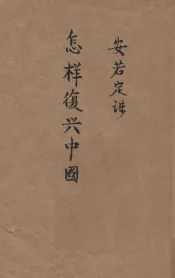 安若定讲
怎样復兴中國